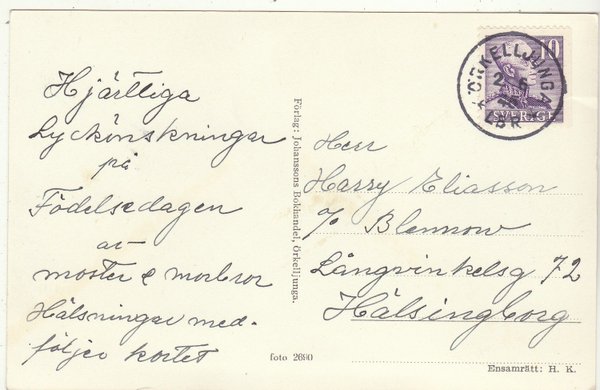 Hjärtliga
Lyckönskningar
på
Födelsedagen
av
moster & morbror
Hälsningar med-
följer kortet
Förlag: Johanssons Bokhandel, Örkelljunga.
foto 2690
10
SVERIGE
ÖRKELLJUNGA
Herr
Harry Eliasson
c/o Blennow
Långvinkelsg 72
Hälsingborg
Ensamrätt: H. K.